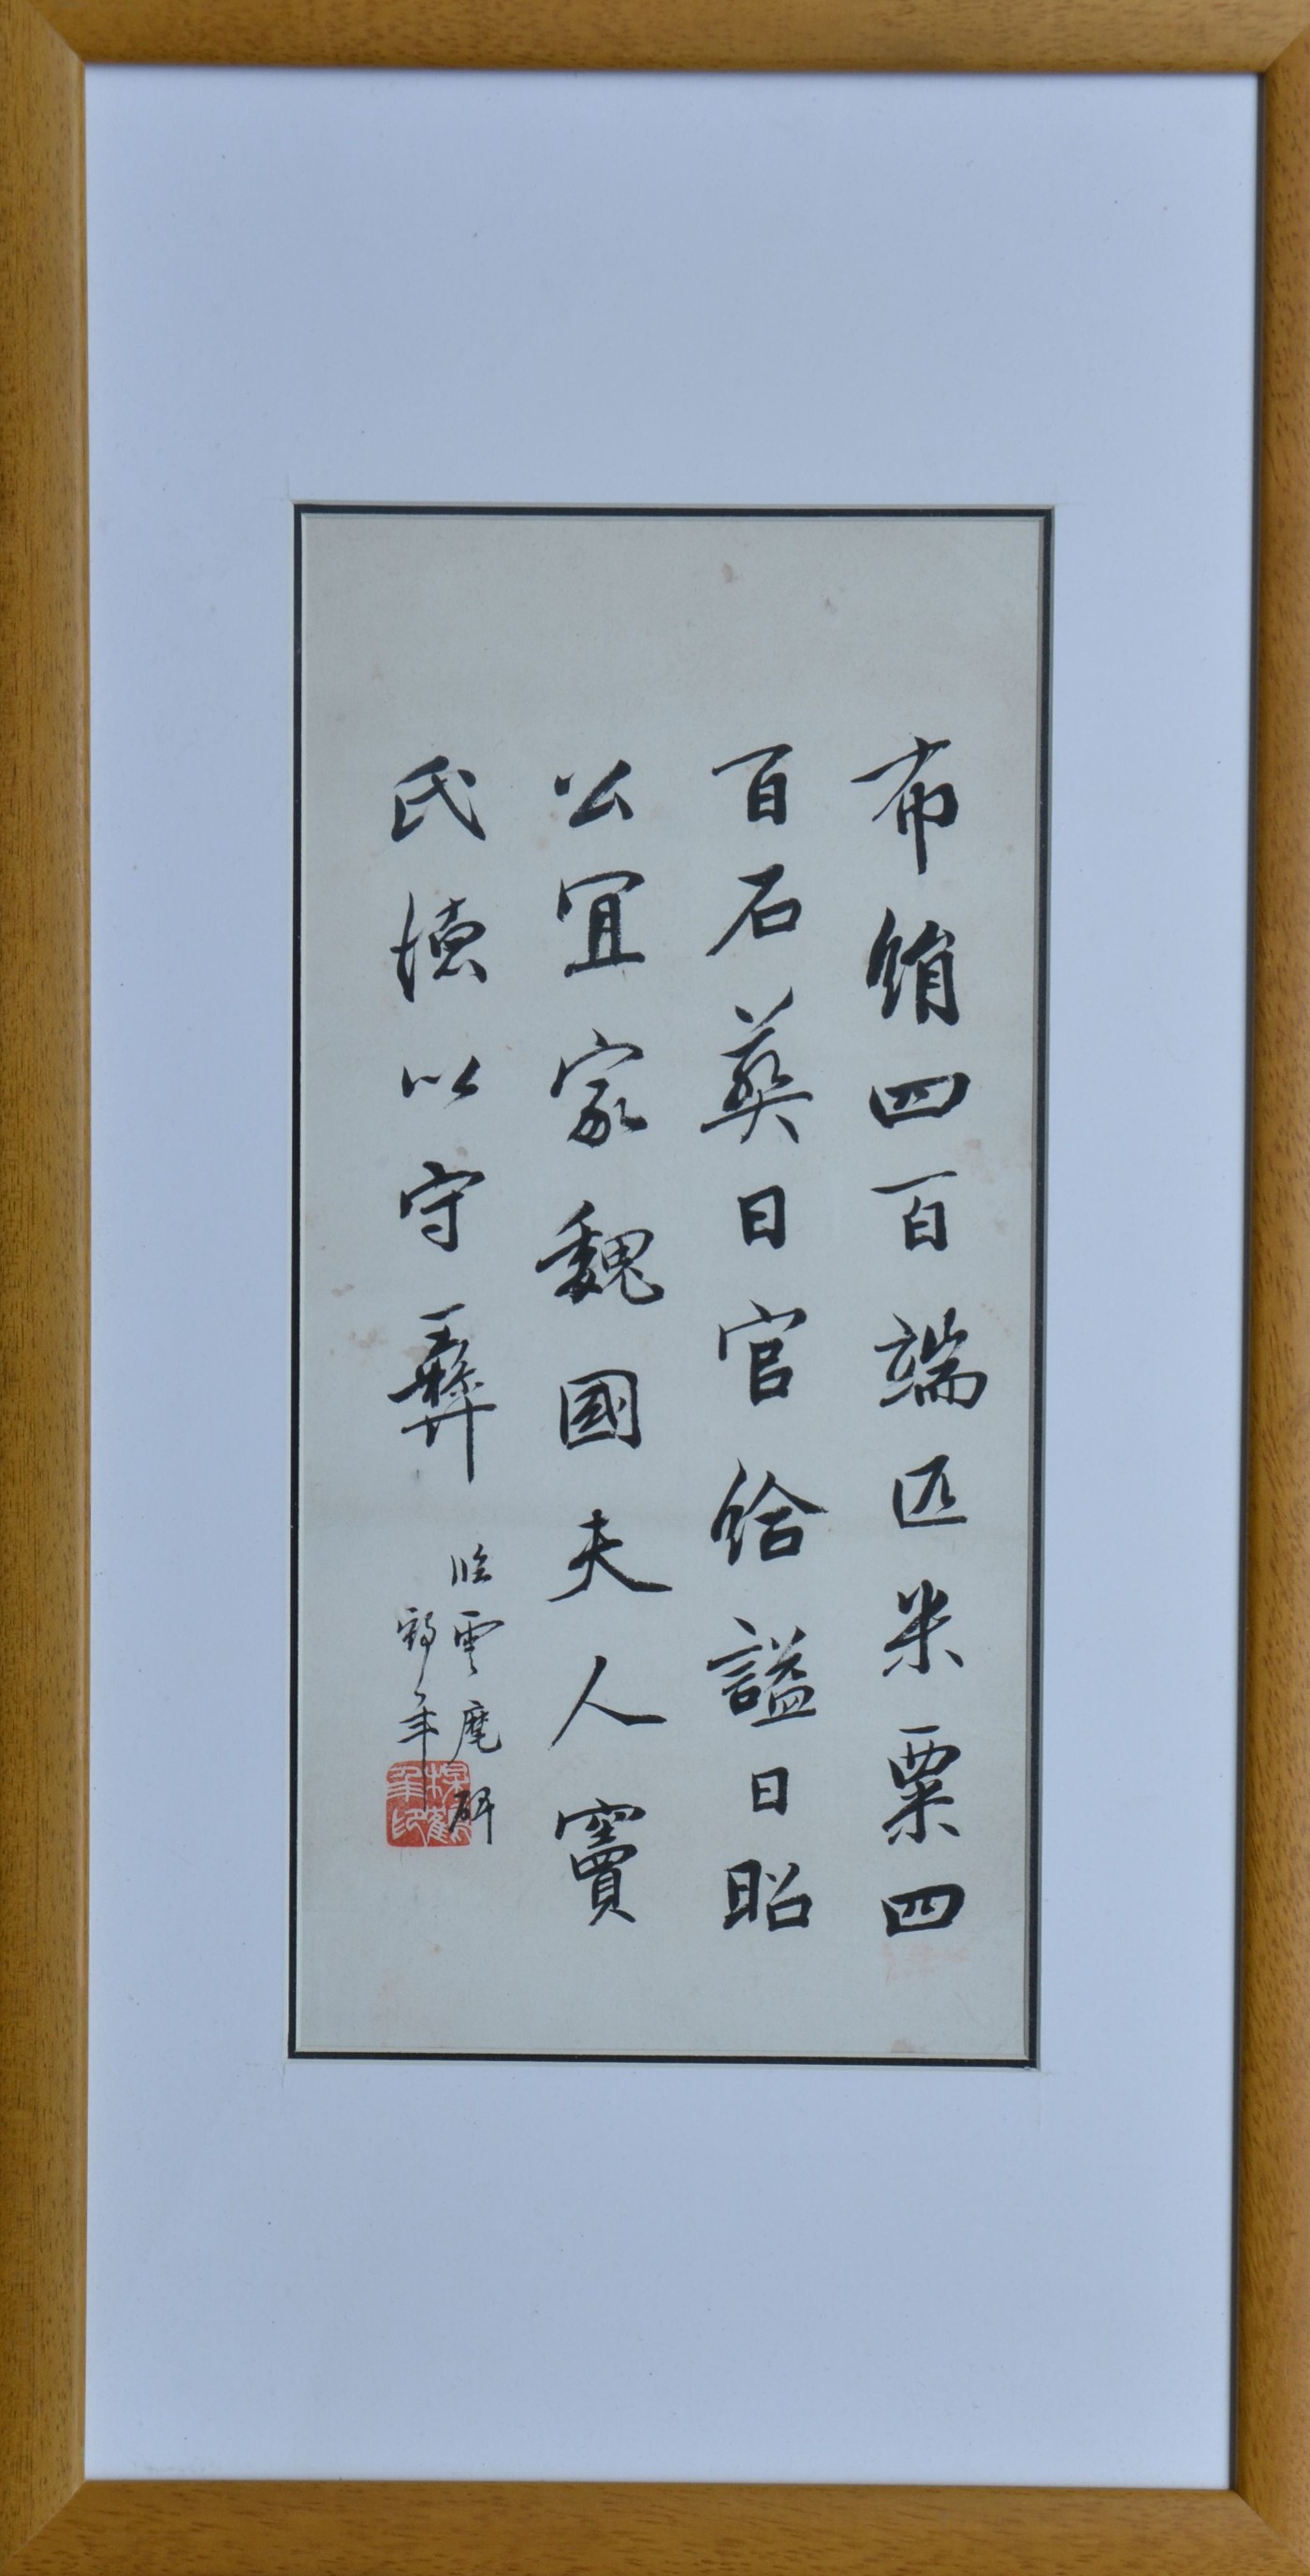 布絹四百端匹米粟四
百石葬日官給謚曰昭
公宜家魏國夫人竇
氏德以守彝
臨雲麾碑
鶴年